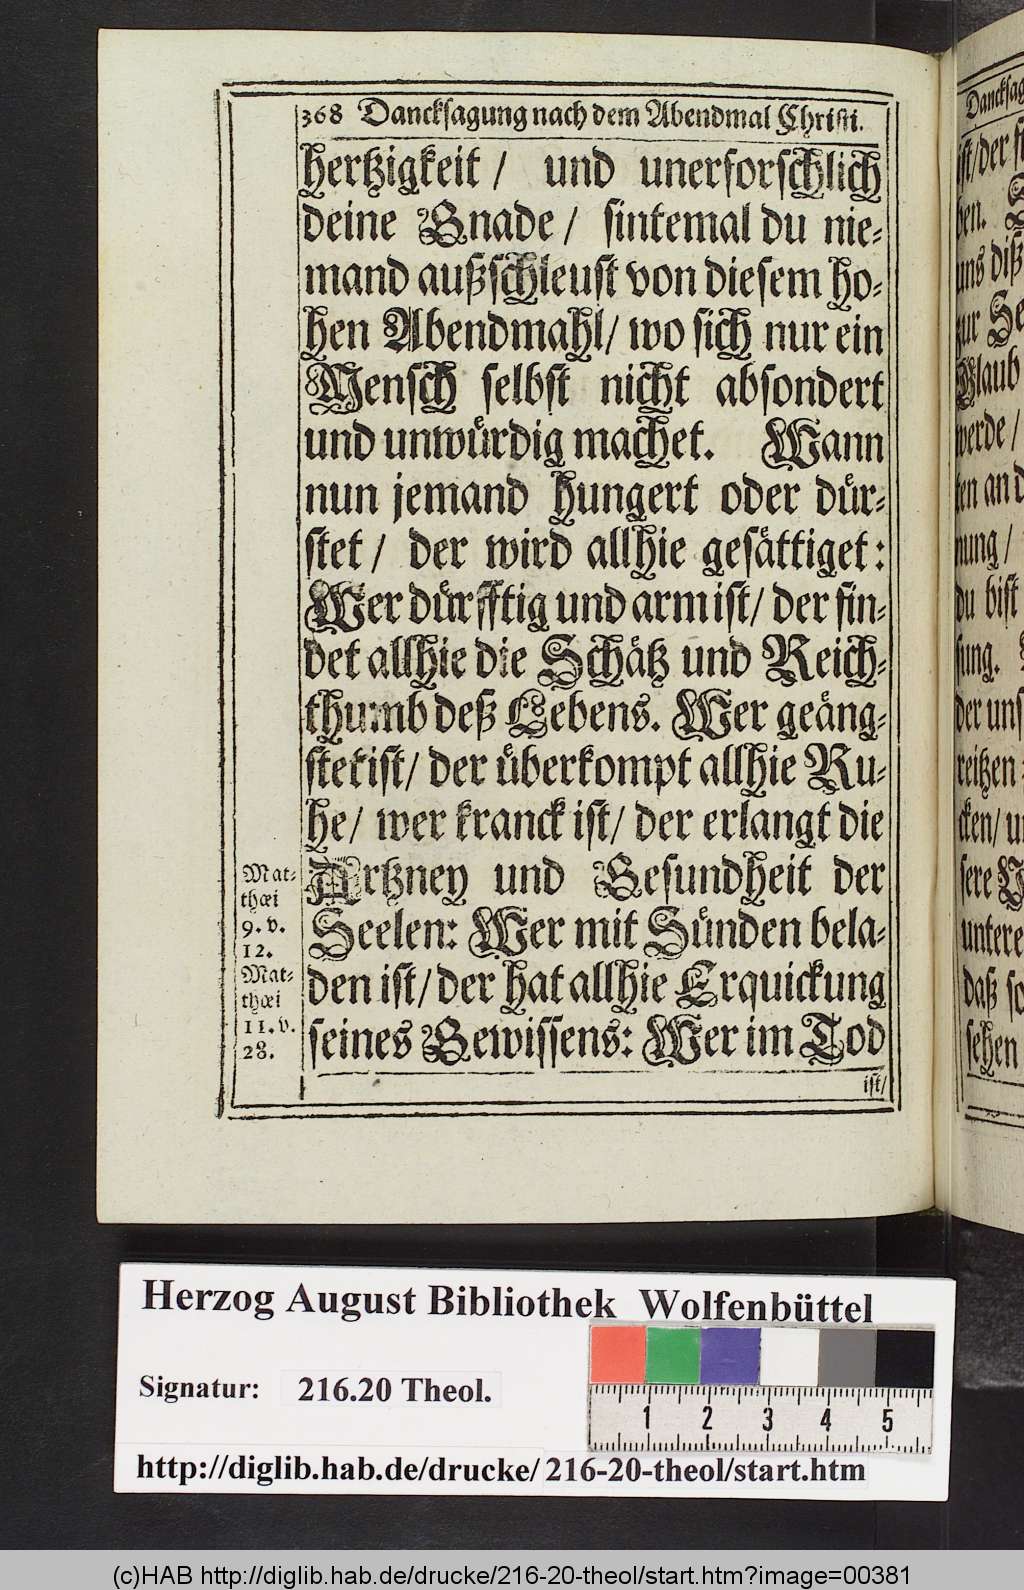 368 Dancksagung nach dem Abendmal Christi.
hertzigkeit / und unerforschlich
deine Gnade / sintemal du nie-
mand außschleust von diesem ho-
hen Abendmahl / wo sich nur ein
Mensch selbst nicht absondert
und unwürdig machet. Wann
nun jemand hungert oder dür-
stet / der wird allhie gesättiget:
Wer dürfftig und arm ist / der fin-
det allhie die Schätz und Reich-
thumb deß Lebens. Wer geäng-
stet ist / der überkompt allhie Ru-
he / wer kranck ist / der erlangt die
Artzney und Gesundheit der
Seelen: Wer mit Sünden bela-
den ist / der hat allhie Erquickung
seines Gewissens: Wer im Tod
ist /
Mat-
thæi
9. v.
12.
Mat-
thæi
11. v.
28.
Dancksag
ist / der
ben.
uns diß
zur
Glaub
werde /
ten an
nung /
du bist
sung.
der uns
reitzen
cken /
sere
untere
daß so
sehen
Herzog August Bibliothek Wolfenbüttel
Signatur: 216.20 Theol.
1 2 3 4 5
http://diglib.hab.de/drucke/216-20-theol/start.htm
(c)HAB http://diglib.hab.de/drucke/216-20-theol/start.htm?image=00381